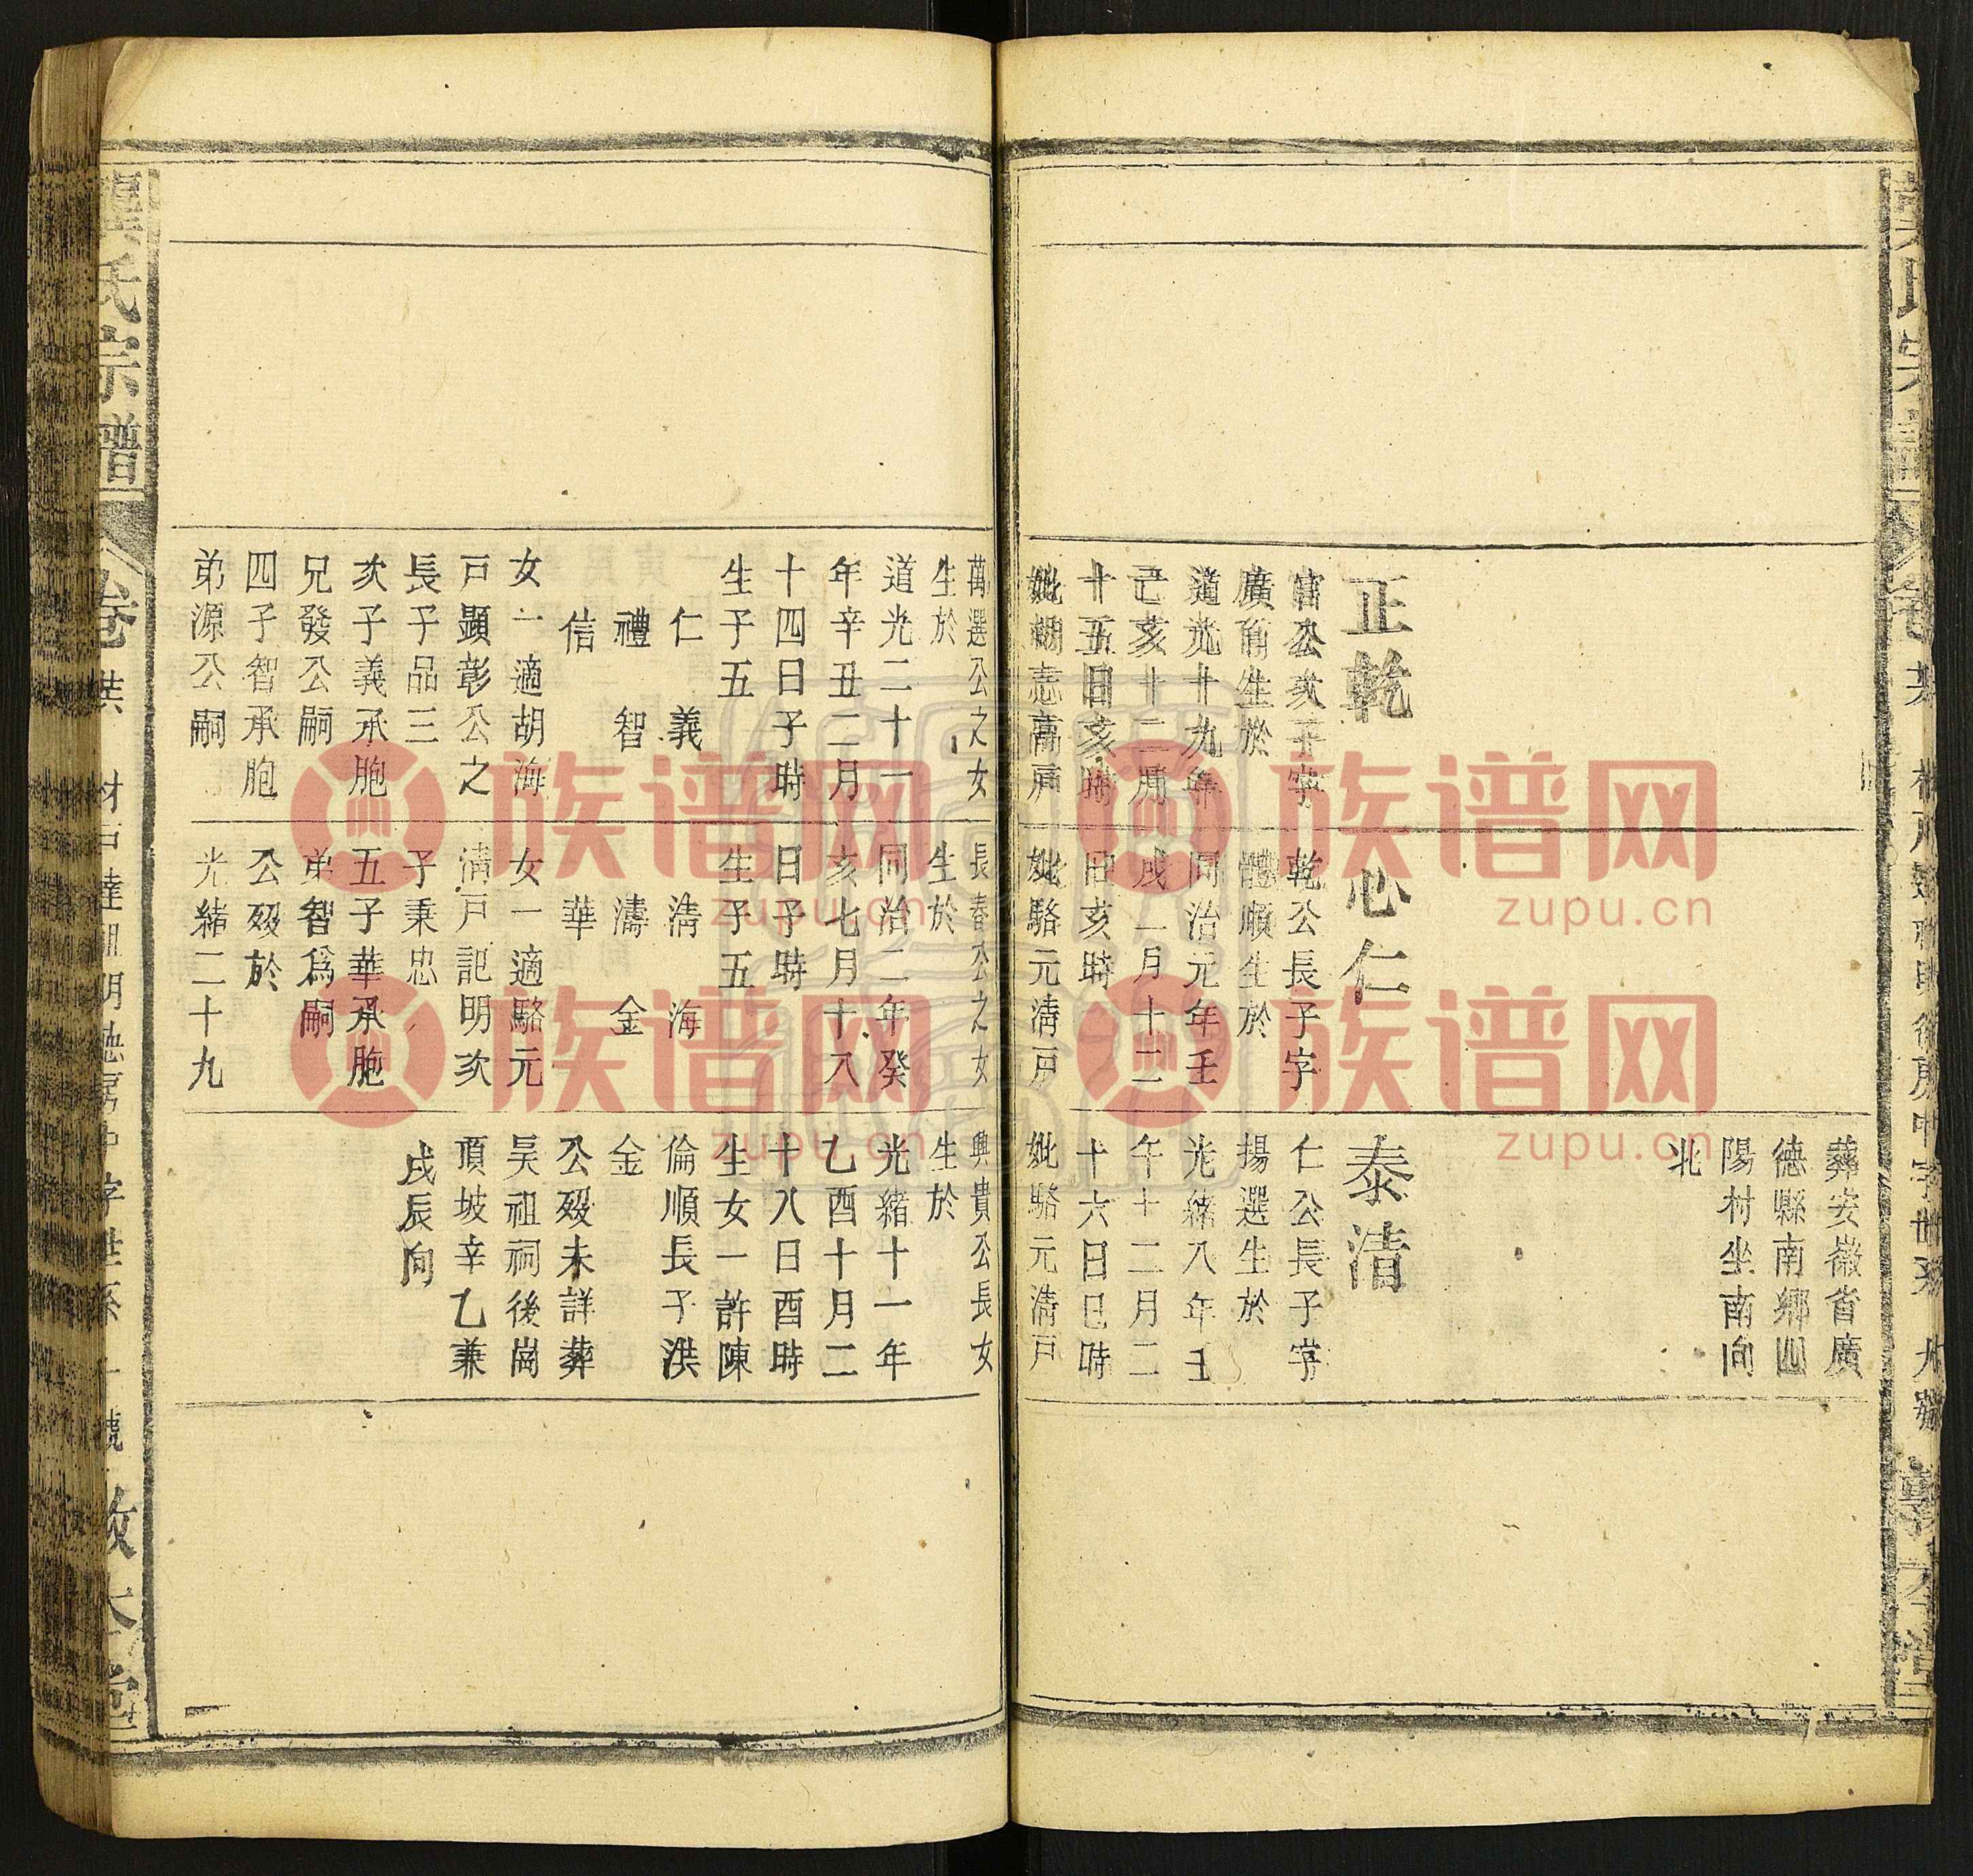 葬安徽省廣
德縣南鄉四
陽村坐南向
北
正乾
富公次子字
廣前生於
道光十九年
己亥十二月
十五日亥時
妣胡志高戶
心仁
乾公長子字
體順生於
同治元年壬
戌一月十二
日亥時
妣駱元清戶
泰清
仁公長子字
揚選生於
光緒八年壬
午十二月二
十六日巳時
妣駱元清戶
萬選公之女
生於
道光二十一
年辛丑二月
十四日子時
生子五
仁 義
禮 智
信
女一適胡海
戶顯彰公之
長子品三
次子義承胞
兄發公嗣
四子智承胞
弟源公嗣
長春公之女
生於
同治二年癸
亥七月十八
日子時
生子五
清 海
濤 金
華
女一適駱元
清戶記明次
子秉忠
五子華承胞
弟智為嗣
公歿於
光緒二十九
興貴公長女
生於
光緒十一年
乙酉十月二
十八日酉時
生女一許陳
倫順長子洪
金
公歿未詳葬
吳祖祠後崗
頂坡辛乙兼
戌辰向
氏宗譜
卷
族谱网
zupu.cn
族谱网
zupu.cn
族谱网
zupu.cn
族谱网
zupu.cn